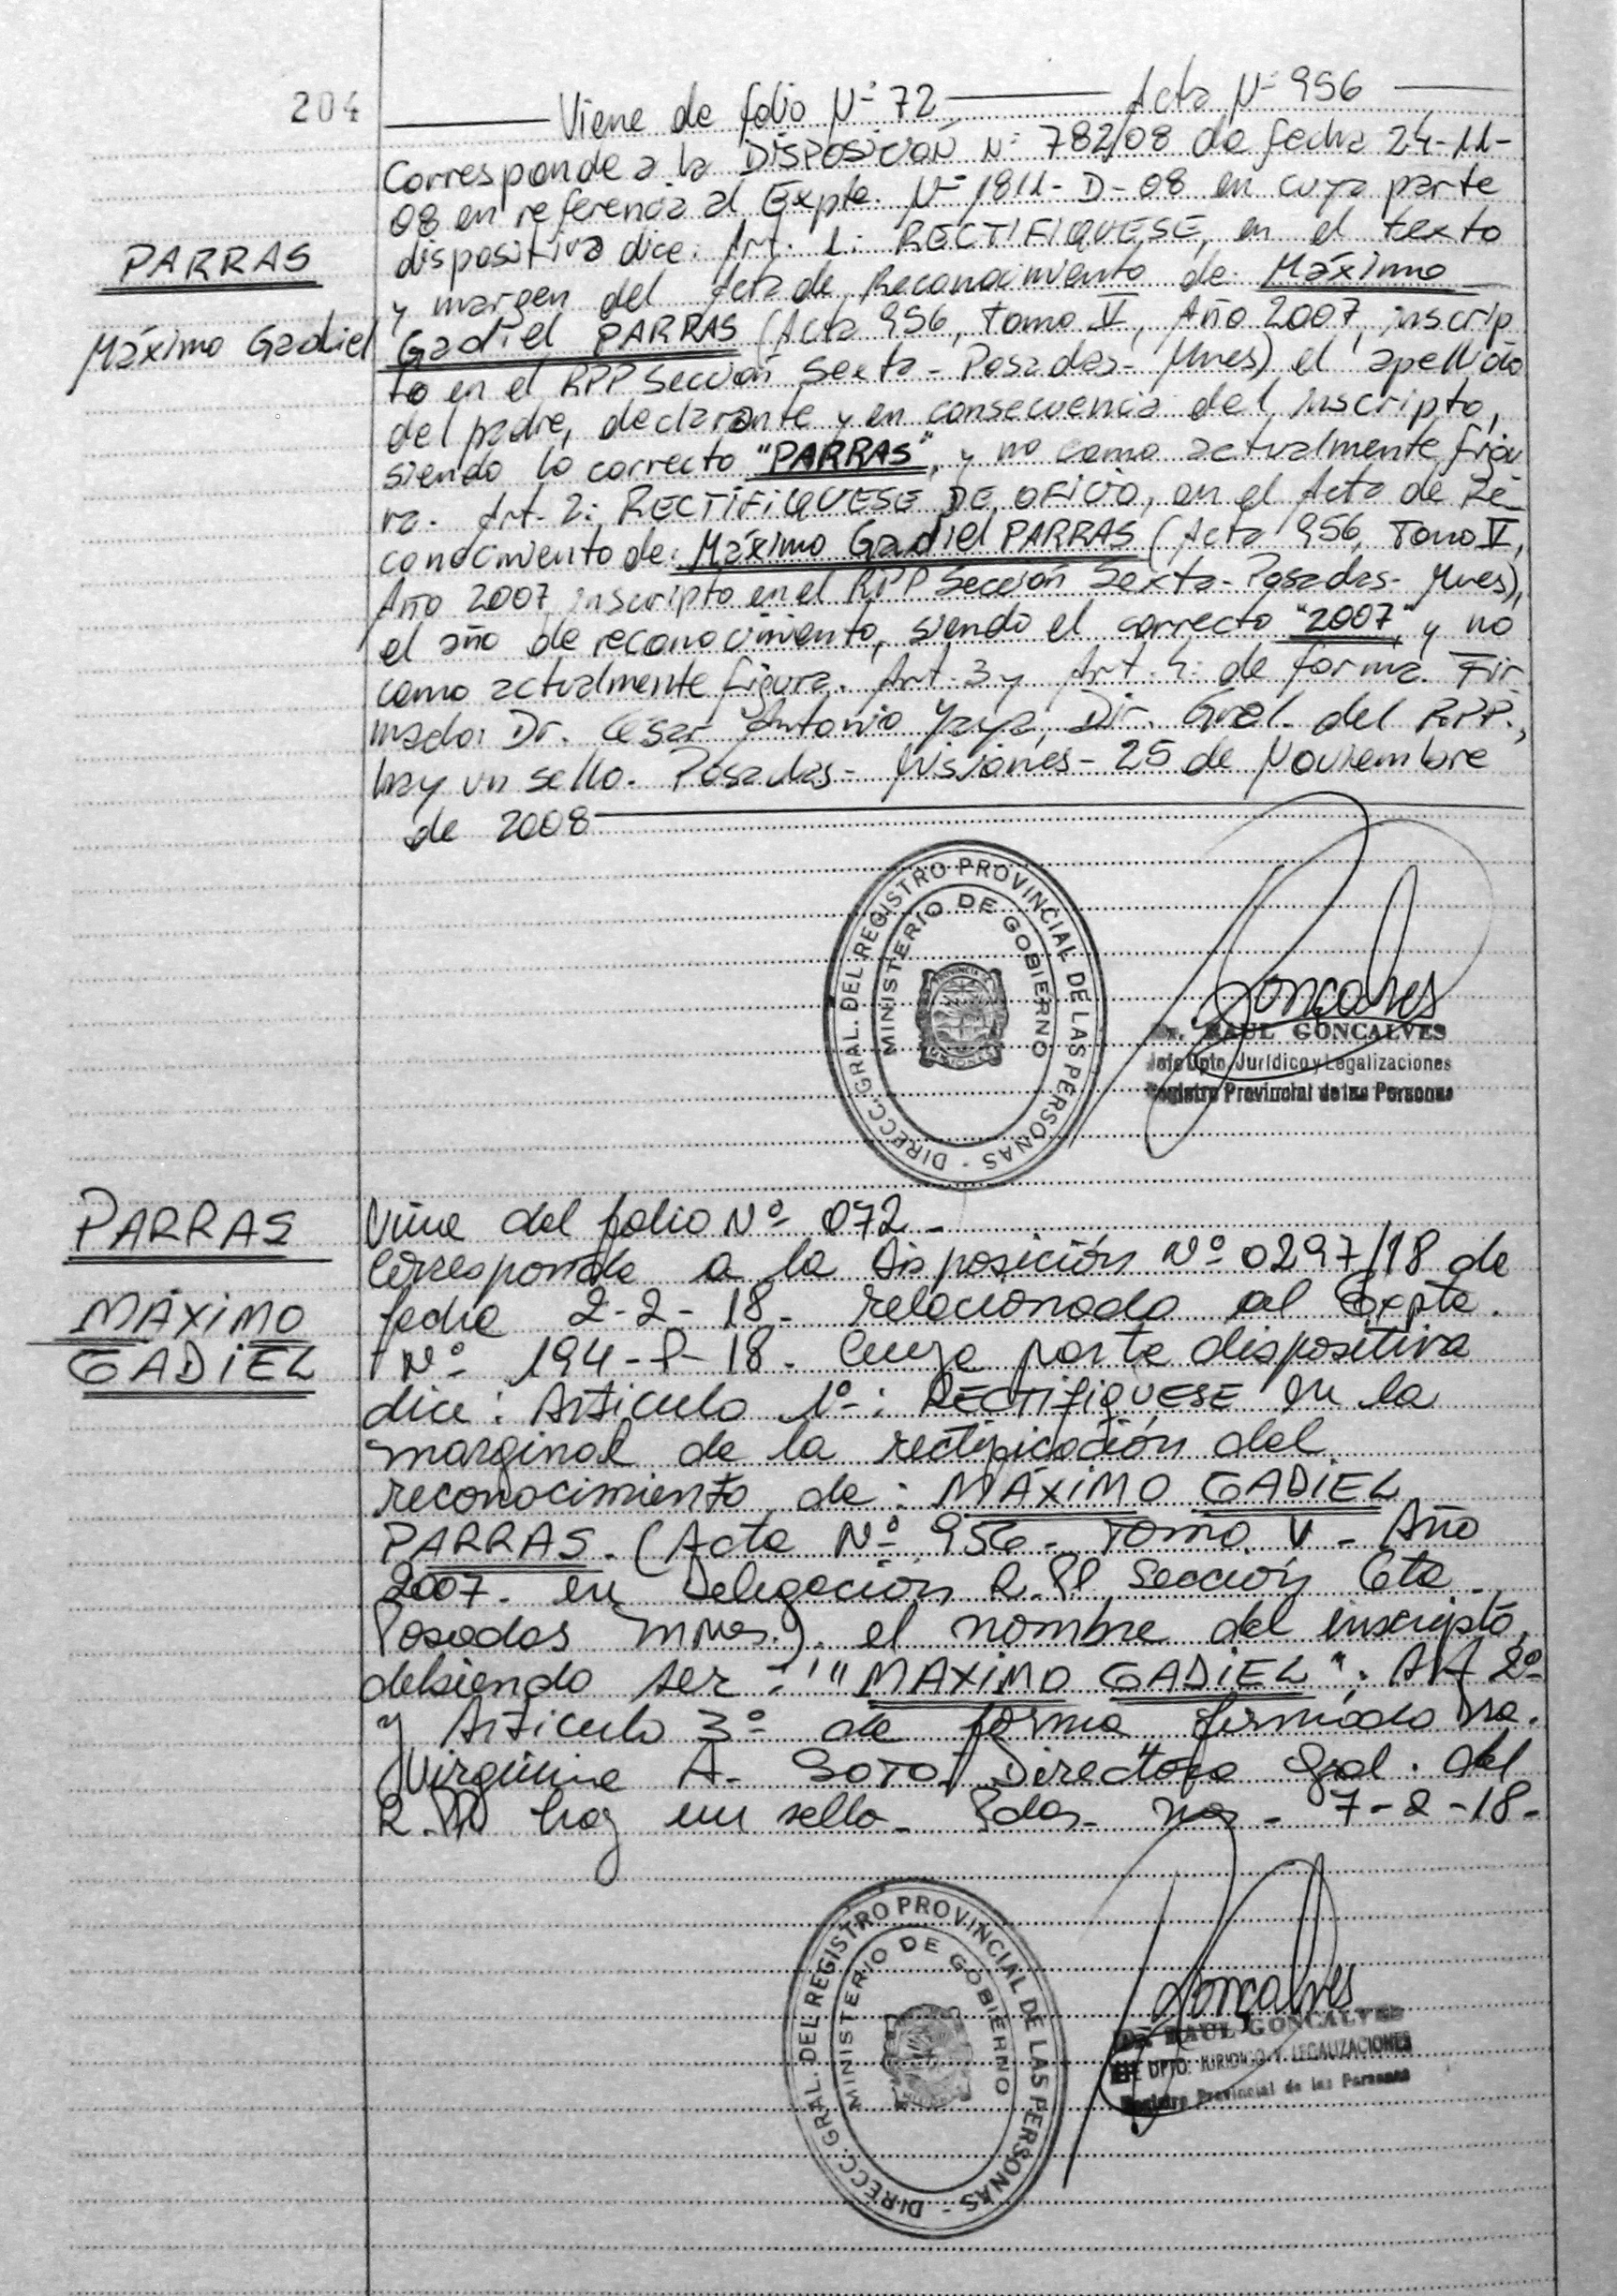 204
Viene de folio Nº 72 Acta Nº 956
Corresponde a la DISPOSICIÓN Nº 782/08 de fecha 24-11-
08 en referencia al Expte. Nº 1811-D-08 en cuya parte
dispositiva dice: Art. 1: RECTIFIQUESE, en el texto
y margen del Acta de Reconocimiento de Máximo
Gadiel PARRAS (Acta 956, Tomo V, Año 2007, inscrip
to en el RPP Sección Sexta - Posadas - Mnes) el apellido
del padre, declarante y en consecuencia del inscripto,
siendo lo correcto "PARRAS", y no como actualmente figu
ra. Art. 2: RECTIFIQUESE DE OFICIO, en el Acta de Re-
conocimiento de: Máximo Gadiel PARRAS (Acta 956, Tomo V,
Año 2007 inscripto en el RPP Sección Sexta - Posadas - Mnes),
el año de reconocimiento, siendo el correcto "2007" y no
como actualmente figura. Art. 3 y Art. 4: de forma. Fir-
mado: Dr. César Antonio Yaya, Dir. Gral. del RPP.,
hay un sello. Posadas - Misiones - 25 de Noviembre
de 2008
PARRAS
Máximo Gadiel
DIRECC. GRAL. DEL REGISTRO PROVINCIAL DE LAS PERSONAS -
MINISTERIO DE GOBIERNO
PROVINCIA DE
MISIONES
Goncalves
Dr. RAUL GONCALVES
Jefe Dpto. Jurídico y Legalizaciones
Registro Provincial de las Personas
PARRAS
MÁXIMO
GADIEL
Viene del folio Nº 072 -
Corresponde a la Disposición Nº 0297/18 de
fecha 2-2-18 - relacionado al Expte.
Nº 194-P-18. Cuya parte dispositiva
dice: Articulo 1º: RECTIFIQUESE en la
marginal de la rectificación del
reconocimiento de: MÁXIMO GADIEL
PARRAS. (Acta Nº 956 - Tomo V - Año
2007. en Delegación R.PP Sección 6ta
Posadas Mnes.). el nombre del inscripto,
debiendo ser: "MAXIMO GADIEL". Art 2º
y Articulo 3º de forma firmado Dra.
Virginia A. SOTO Directora Gral. del
R.PP hay un sello - Pdas - Mnes - 7-2-18-
DIRECC. GRAL. DEL REGISTRO PROVINCIAL DE LAS PERSONAS -
MINISTERIO DE GOBIERNO
Gonçalves
Dr. RAUL GONCALVES
JEFE DPTO. JURIDICO Y LEGALIZACIONES
Registro Provincial de las Personas